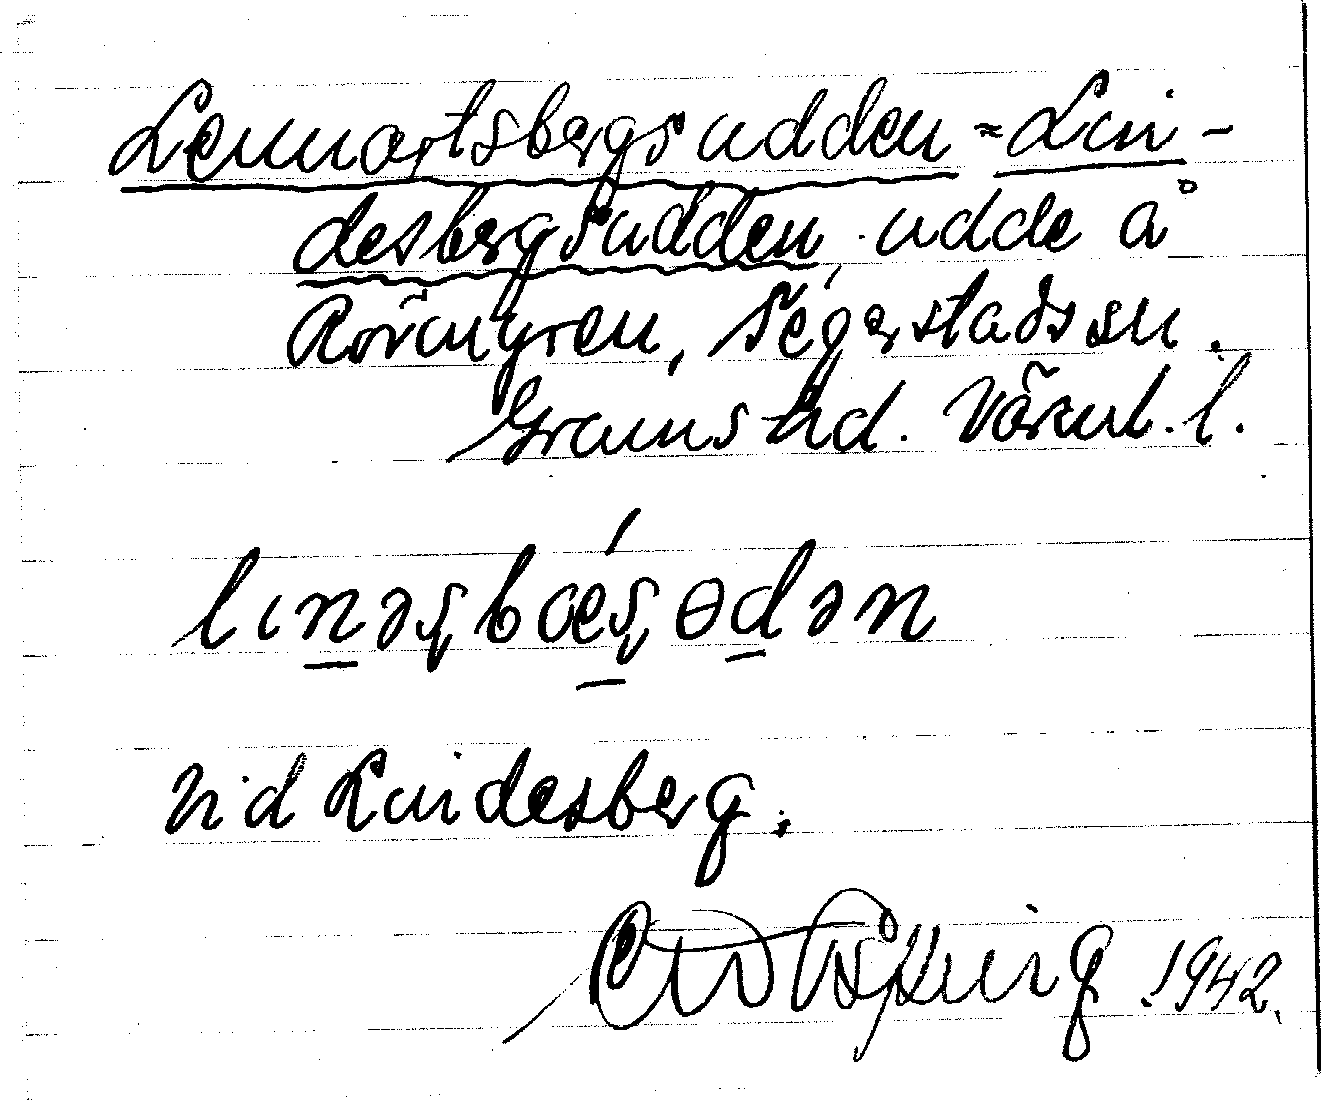 Lennartsbergsudden = Lin-
desbergsudden, udde å
Rörängren, Segerstads sn.
Grums hd. Värml. l.
lınəşbœşɵdən
Vid Lindesberg.
1942.